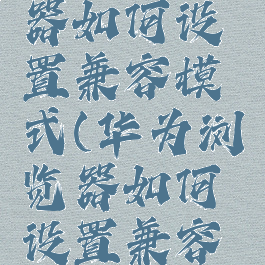 器如何设
置兼容模
式(华为浏
览器如何
设置兼容